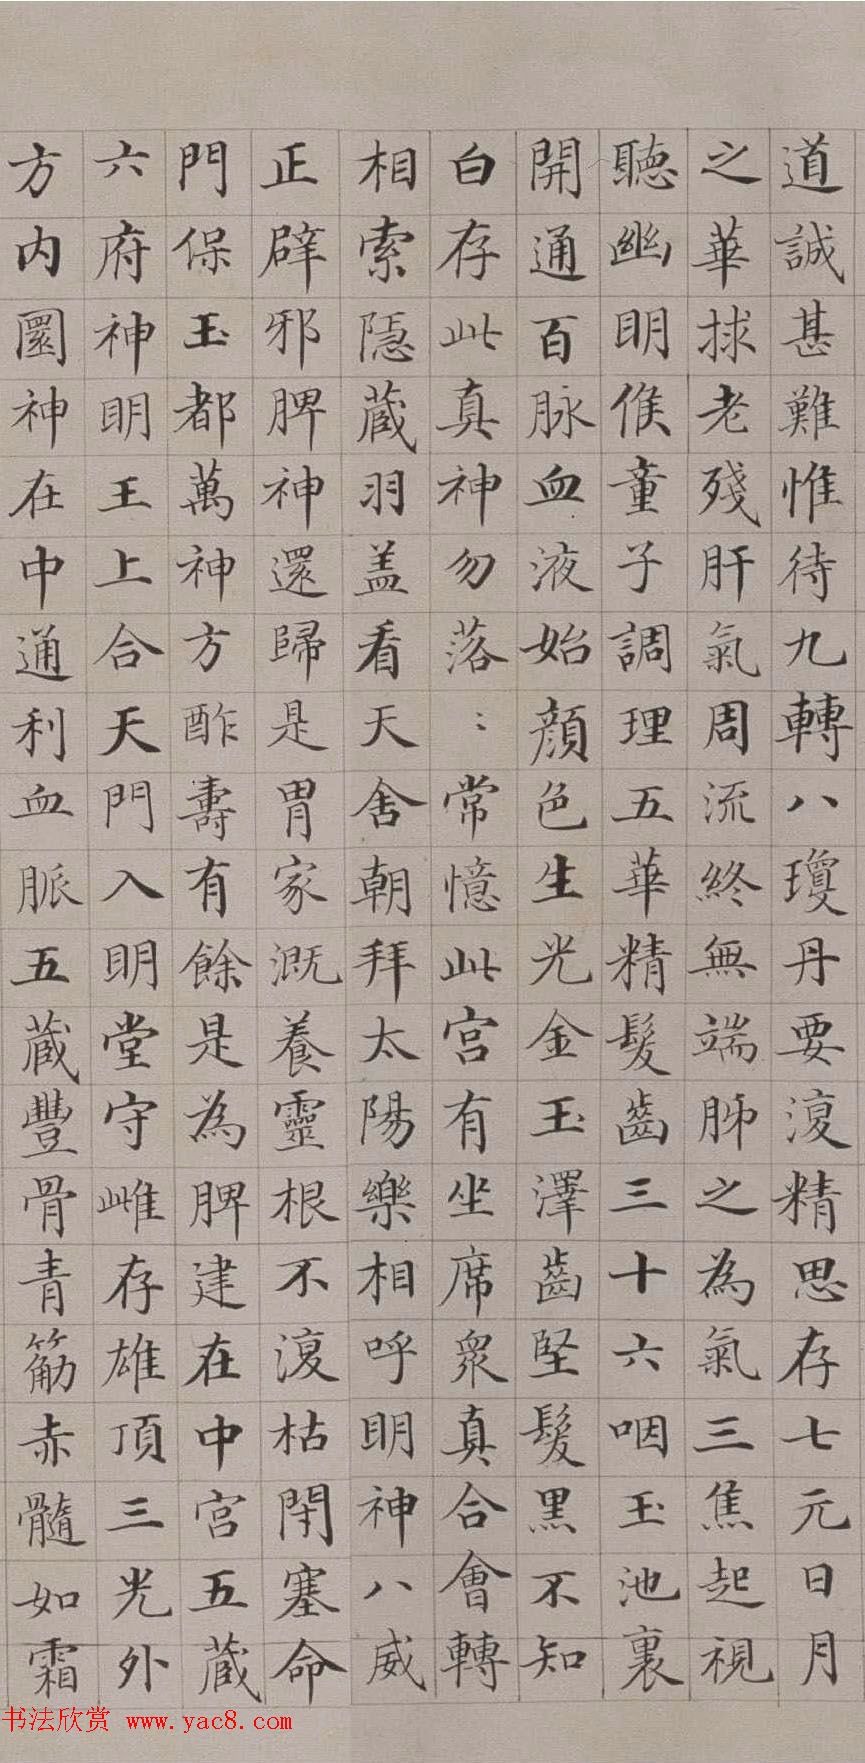 道誠甚難惟待九轉八瓊丹要復精思存七元日月
之華捄老殘肝氣周流終無端肺之為氣三焦起視
聽幽明候童子調理五華精髮齒三十六咽玉池裏
開通百脉血液始顏色生光金玉澤齒堅髮黑不知
白存此真神勿落〻常憶此宮有坐席衆真合會轉
相索隱蔵羽盖看天舍朝拜太陽樂相呼明神八威
正辟邪脾神還歸是胃家溉養靈根不復枯閇塞命
門保玉都萬神方酢壽有餘是為脾建在中宮五蔵
六府神明王上合天門入明堂守雌存雄頂三光外
方內圓神在中通利血脈五蔵豐骨青筋赤髓如霜
书法欣赏 www.yac8.com